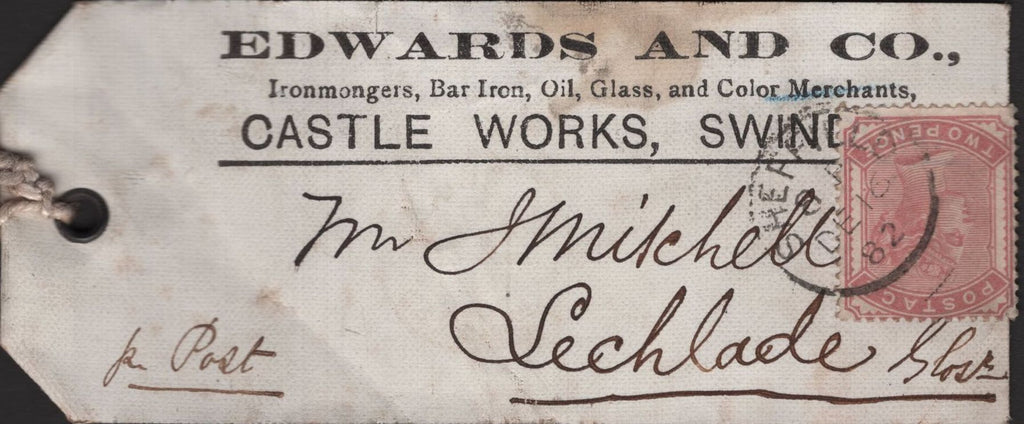 EDWARDS AND CO.,
Ironmongers, Bar Iron, Oil, Glass, and Color Merchants,
CASTLE WORKS, SWIND
Mr J Mitchell
Lechlade Glosr
pr Post
POSTAGE
TWO PENCE
SHEFFIELD
DE 10
82